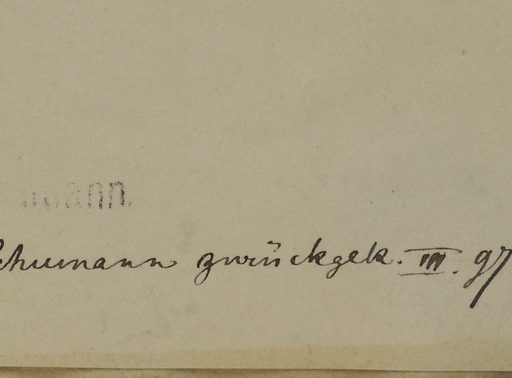 Schumann zurückgek. III. 97